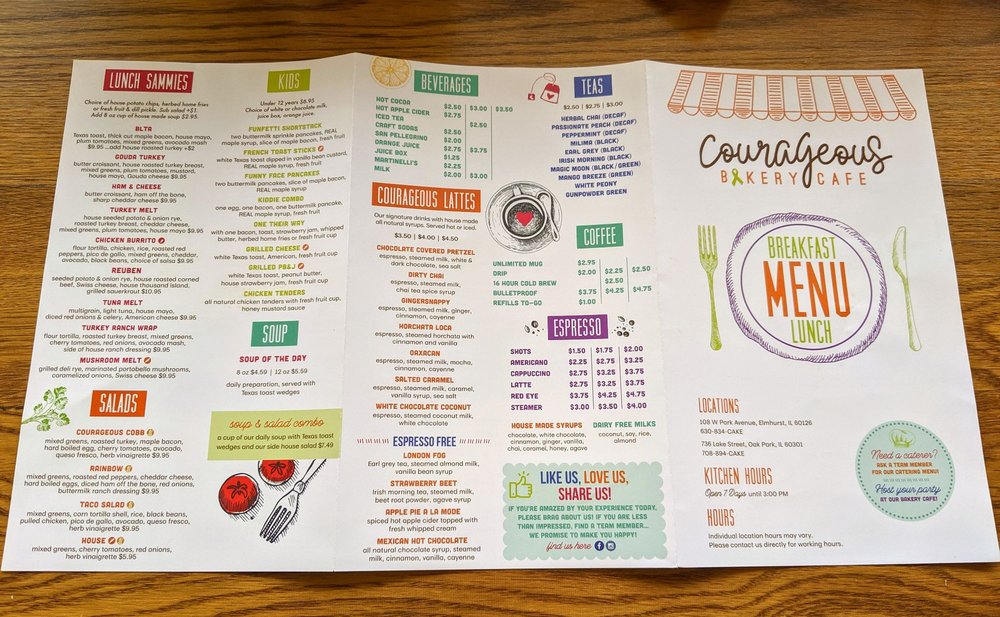 LUNCH SAMMIES
Choice of house potato chips, herbed home fries
or fresh fruit & dill pickle. Sub salad +$1
Add 8 oz cup of house made soup $2.95.
BLTA
Texas toast, thick cut maple bacon, house mayo,
plum tomatoes, mixed greens, avocado mash
$9.95 ...add house roasted turkey +$2
GOUDA TURKEY
butter croissant, house roasted turkey breast,
mixed greens, plum tomatoes, mustard,
house mayo, Gouda cheese $9.95
HAM & CHEESE
butter croissant, ham off the bone,
sharp cheddar cheese $9.95
TURKEY MELT
house seeded potato & onion rye,
roasted turkey breast, cheddar cheese,
mixed greens, plum tomatoes, house mayo $9.95
CHICKEN BURRITO
flour tortilla, chicken, rice, roasted red
peppers, pico de gallo, mixed greens, cheddar,
avocado, black beans, choice of salsa $9.95
REUBEN
seeded potato & onion rye, house roasted corned
beef, Swiss cheese, house thousand island,
grilled sauerkraut $10.95
TUNA MELT
multigrain, light tuna, house mayo,
diced red onions & celery, American cheese $9.95
TURKEY RANCH WRAP
flour tortilla, roasted turkey breast, mixed greens,
cherry tomatoes, red onions, avocado mash,
side of house ranch dressing $9.95
MUSHROOM MELT
grilled deli rye, marinated portobello mushrooms,
caramelized onions, Swiss cheese $9.95
SALADS
COURAGEOUS COBB
mixed greens, roasted turkey, maple bacon,
hard boiled egg, cherry tomatoes, avocado,
queso fresco, herb vinaigrette $9.95
RAINBOW
mixed greens, roasted red peppers, cheddar cheese,
hard boiled eggs, diced ham off the bone, red onions,
buttermilk ranch dressing $9.95
TACO SALAD
mixed greens, corn tortilla shell, rice, black beans,
pulled chicken, pico de gallo, avocado, queso fresco,
herb vinaigrette $9.95
HOUSE
mixed greens, cherry tomatoes, red onions,
herb vinaigrette $5.95
KIDS
Under 12 years $6.95
Choice of white or chocolate milk,
juice box, orange juice.
FUNFETTI SHORTSTACK
two buttermilk sprinkle pancakes, REAL
maple syrup, slice of maple bacon, fresh fruit
FRENCH TOAST STICKS
white Texas toast dipped in vanilla bean custard,
REAL maple syrup, fresh fruit
FUNNY FACE PANCAKES
two buttermilk pancakes, slice of maple bacon,
REAL maple syrup
KIDDIE COMBO
one egg, one bacon, one buttermilk pancake,
REAL maple syrup, fresh fruit
ONE THEIR WAY
with one bacon, toast, strawberry jam, whipped
butter, herbed home fries or fresh fruit cup
GRILLED CHEESE
white Texas toast, American, fresh fruit cup
GRILLED PB&J
white Texas toast, peanut butter,
house strawberry jam, fresh fruit cup
CHICKEN TENDERS
all natural chicken tenders with fresh fruit cup,
honey mustard sauce
SOUP
SOUP OF THE DAY
8 oz $4.59 | 12 oz $5.59
daily preparation, served with
Texas toast wedges
soup & salad combo
a cup of our daily soup with Texas toast
wedges and our side house salad $7.49
BEVERAGES
HOT COCOA $2.50 | $3.00 | $3.50
HOT APPLE CIDER $2.75
ICED TEA $2.50
CRAFT SODAS $2.50
SAN PELLEGRINO $2.00
ORANGE JUICE $2.75 | $3.75
JUICE BOX $1.25
MARTINELLI'S $2.25
MILK $2.00 | $3.00
COURAGEOUS LATTES
Our signature drinks with house made
all natural syrups. Served hot or iced.
$3.50 | $4.00 | $4.50
CHOCOLATE COVERED PRETZEL
espresso, steamed milk, white &
dark chocolate, sea salt
DIRTY CHAI
espresso, steamed milk,
chai tea spice syrup
GINGERSNAPPY
espresso, steamed milk, ginger,
cinnamon, cayenne
HORCHATA LOCA
espresso, steamed horchata with
cinnamon and vanilla
OAXACAN
espresso, steamed milk, mocha,
cinnamon, cayenne
SALTED CARAMEL
espresso, steamed milk, caramel,
vanilla syrup, sea salt
WHITE CHOCOLATE COCONUT
espresso, steamed coconut milk,
white chocolate
ESPRESSO FREE
LONDON FOG
Earl grey tea, steamed almond milk,
vanilla bean syrup
STRAWBERRY BEET
Irish morning tea, steamed milk,
beet root powder, agave syrup
APPLE PIE A LA MODE
spiced hot apple cider topped with
fresh whipped cream
MEXICAN HOT CHOCOLATE
all natural chocolate syrup, steamed
milk, cinnamon, vanilla, cayenne
TEAS
$2.50 | $2.75 | $3.00
HERBAL CHAI (DECAF)
PASSIONATE PEACH (DECAF)
PEPPERMINT (DECAF)
MILIMA (BLACK)
EARL GREY (BLACK)
IRISH MORNING (BLACK)
MAGIC MOON (BLACK/GREEN)
MANGO BREEZE (GREEN)
WHITE PEONY
GUNPOWDER GREEN
COFFEE
UNLIMITED MUG $2.95
DRIP $2.00 | $2.25 | $2.50
16 HOUR COLD BREW $2.50
BULLETPROOF $3.75 | $4.25 | $4.75
REFILLS TO-GO $1.00
ESPRESSO
SHOTS $1.50 | $1.75 | $2.00
AMERICANO $2.25 | $2.75 | $3.25
CAPPUCCINO $2.75 | $3.25 | $3.75
LATTE $2.75 | $3.25 | $3.75
RED EYE $3.75 | $4.25 | $4.75
STEAMER $3.00 | $3.50 | $4.00
HOUSE MADE SYRUPS
chocolate, white chocolate,
cinnamon, ginger, vanilla,
chai, caramel, honey, agave
DAIRY FREE MILKS
coconut, soy, rice,
almond
LIKE US, LOVE US,
SHARE US!
IF YOU'RE AMAZED BY YOUR EXPERIENCE TODAY,
PLEASE BRAG ABOUT US! IF YOU ARE LESS
THAN IMPRESSED, FIND A TEAM MEMBER...
WE PROMISE TO MAKE YOU HAPPY!
find us here
Courageous
BAKERY CAFE
BREAKFAST
MENU
LUNCH
LOCATIONS
108 W Park Avenue, Elmhurst, IL 60126
630-834-CAKE
736 Lake Street, Oak Park, IL 60301
708-894-CAKE
KITCHEN HOURS
Open 7 Days until 3:00 PM
HOURS
Individual location hours may vary.
Please contact us directly for working hours.
Need a caterer?
ASK A TEAM MEMBER
FOR OUR CATERING MENU!
Host your party
AT OUR BAKERY CAFE!